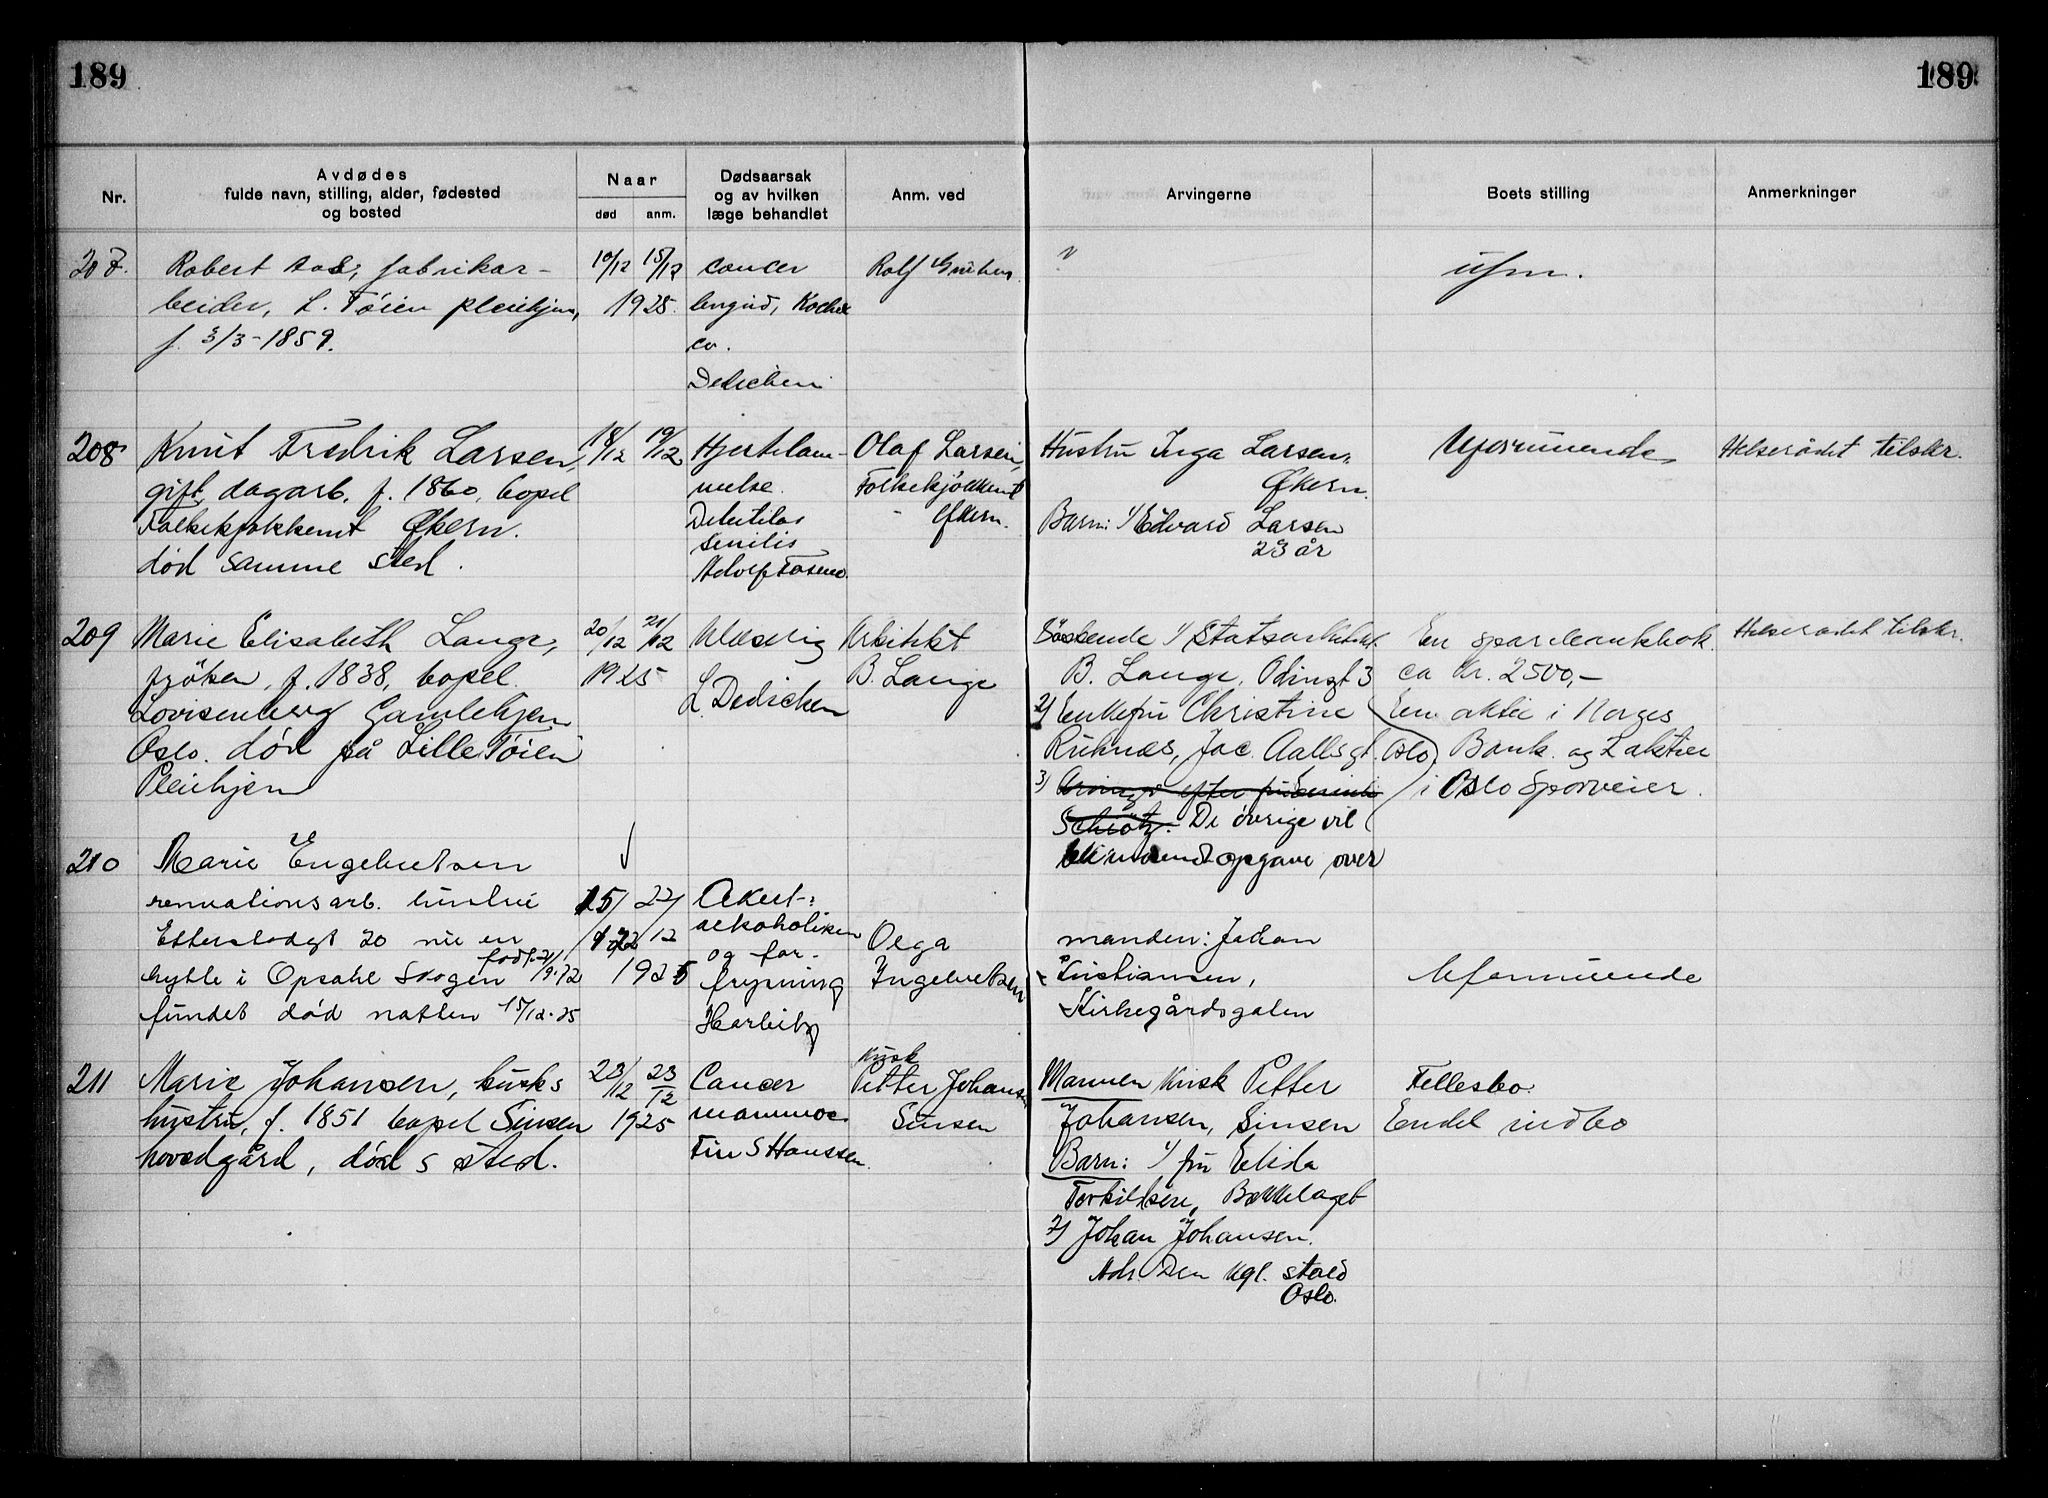 189
189
Nr.
Avdødes
fulde navn, stilling, alder, fødested
og bosted
Naar
død
anm.
Dødsaarsak
og av hvilken
læge behandlet
Anm. ved
Arvingerne
Boets stilling
Anmerkninger
207.
Robert Aas, fabrikar-
beider, L. Tøien pleiehjem,
f. 3/3-1859.
10/12 15/12
1925.
cancer
Dedichen
Rolf
ufm.
208
Knut Fredrik Larsen,
gift, dagarb. f. 1860, bopel
Folkekjøkkenet Økern.
død samme sted.
18/12 19/12
Hjertelam-
melse.
Debilitas
senilis
Adolf
Olaf Larsen,
Folkekjøkkenet
Økern.
Hustru Inga Larsen,
Økern.
Barn: 1) Edvard Larsen
23 år
Uformuende
Helserådet tilskr.
209
Marie Elisabeth Lange,
frøken, f. 1838, bopel
Lovisenberg Gamlehjem
Oslo. død på Lille Tøien
Pleiehjem
20/12 21/12
1925
L. Dedichen
Arkitekt
B. Lange
Søskende 1) Statsarkitekt
B. Lange, Odinsgt 3
2) Enkefru Christine
Ruknæs, Jac. Aallsgt. Oslo
3) Arvinger efter fru
Schiøtz. De øvrige vil
bli innsendt opgave over
En sparebankbok
ca kr. 2500,-
En aktie i Norges
Bank og 2 aktier
i Oslo Sporveier.
Helserådet tilskr.
210
Marie Engebretsen
renovationsarb. hustru
Etterstadgt 20 nu en
født 21/9-72
hytte i Opsahl Skogen
fundet død natten 15/12-25
15/12 22/12
1925
Akut
alkoholisme
og for-
frysning
Harbitz
Olga
Ingebretsen
manden: Johan
Kristiansen,
Kirkegårdsgaten
Uformuende
211
Marie Johansen, kusks
hustru, f. 1851 bopel Sinsen
hovedgård, død s sted.
23/12 23/12
1925
Cancer
mammae
Finn S Hanssen.
Kusk
Petter Johansen
Sinsen
Mannen Kusk Petter
Johansen, Sinsen
Barn: 1) fru Elida
Torkildsen, Bækkelaget
2) Johan Johansen.
Adr. Den kgl. stald
Oslo.
Fellesbo.
Endel indbo